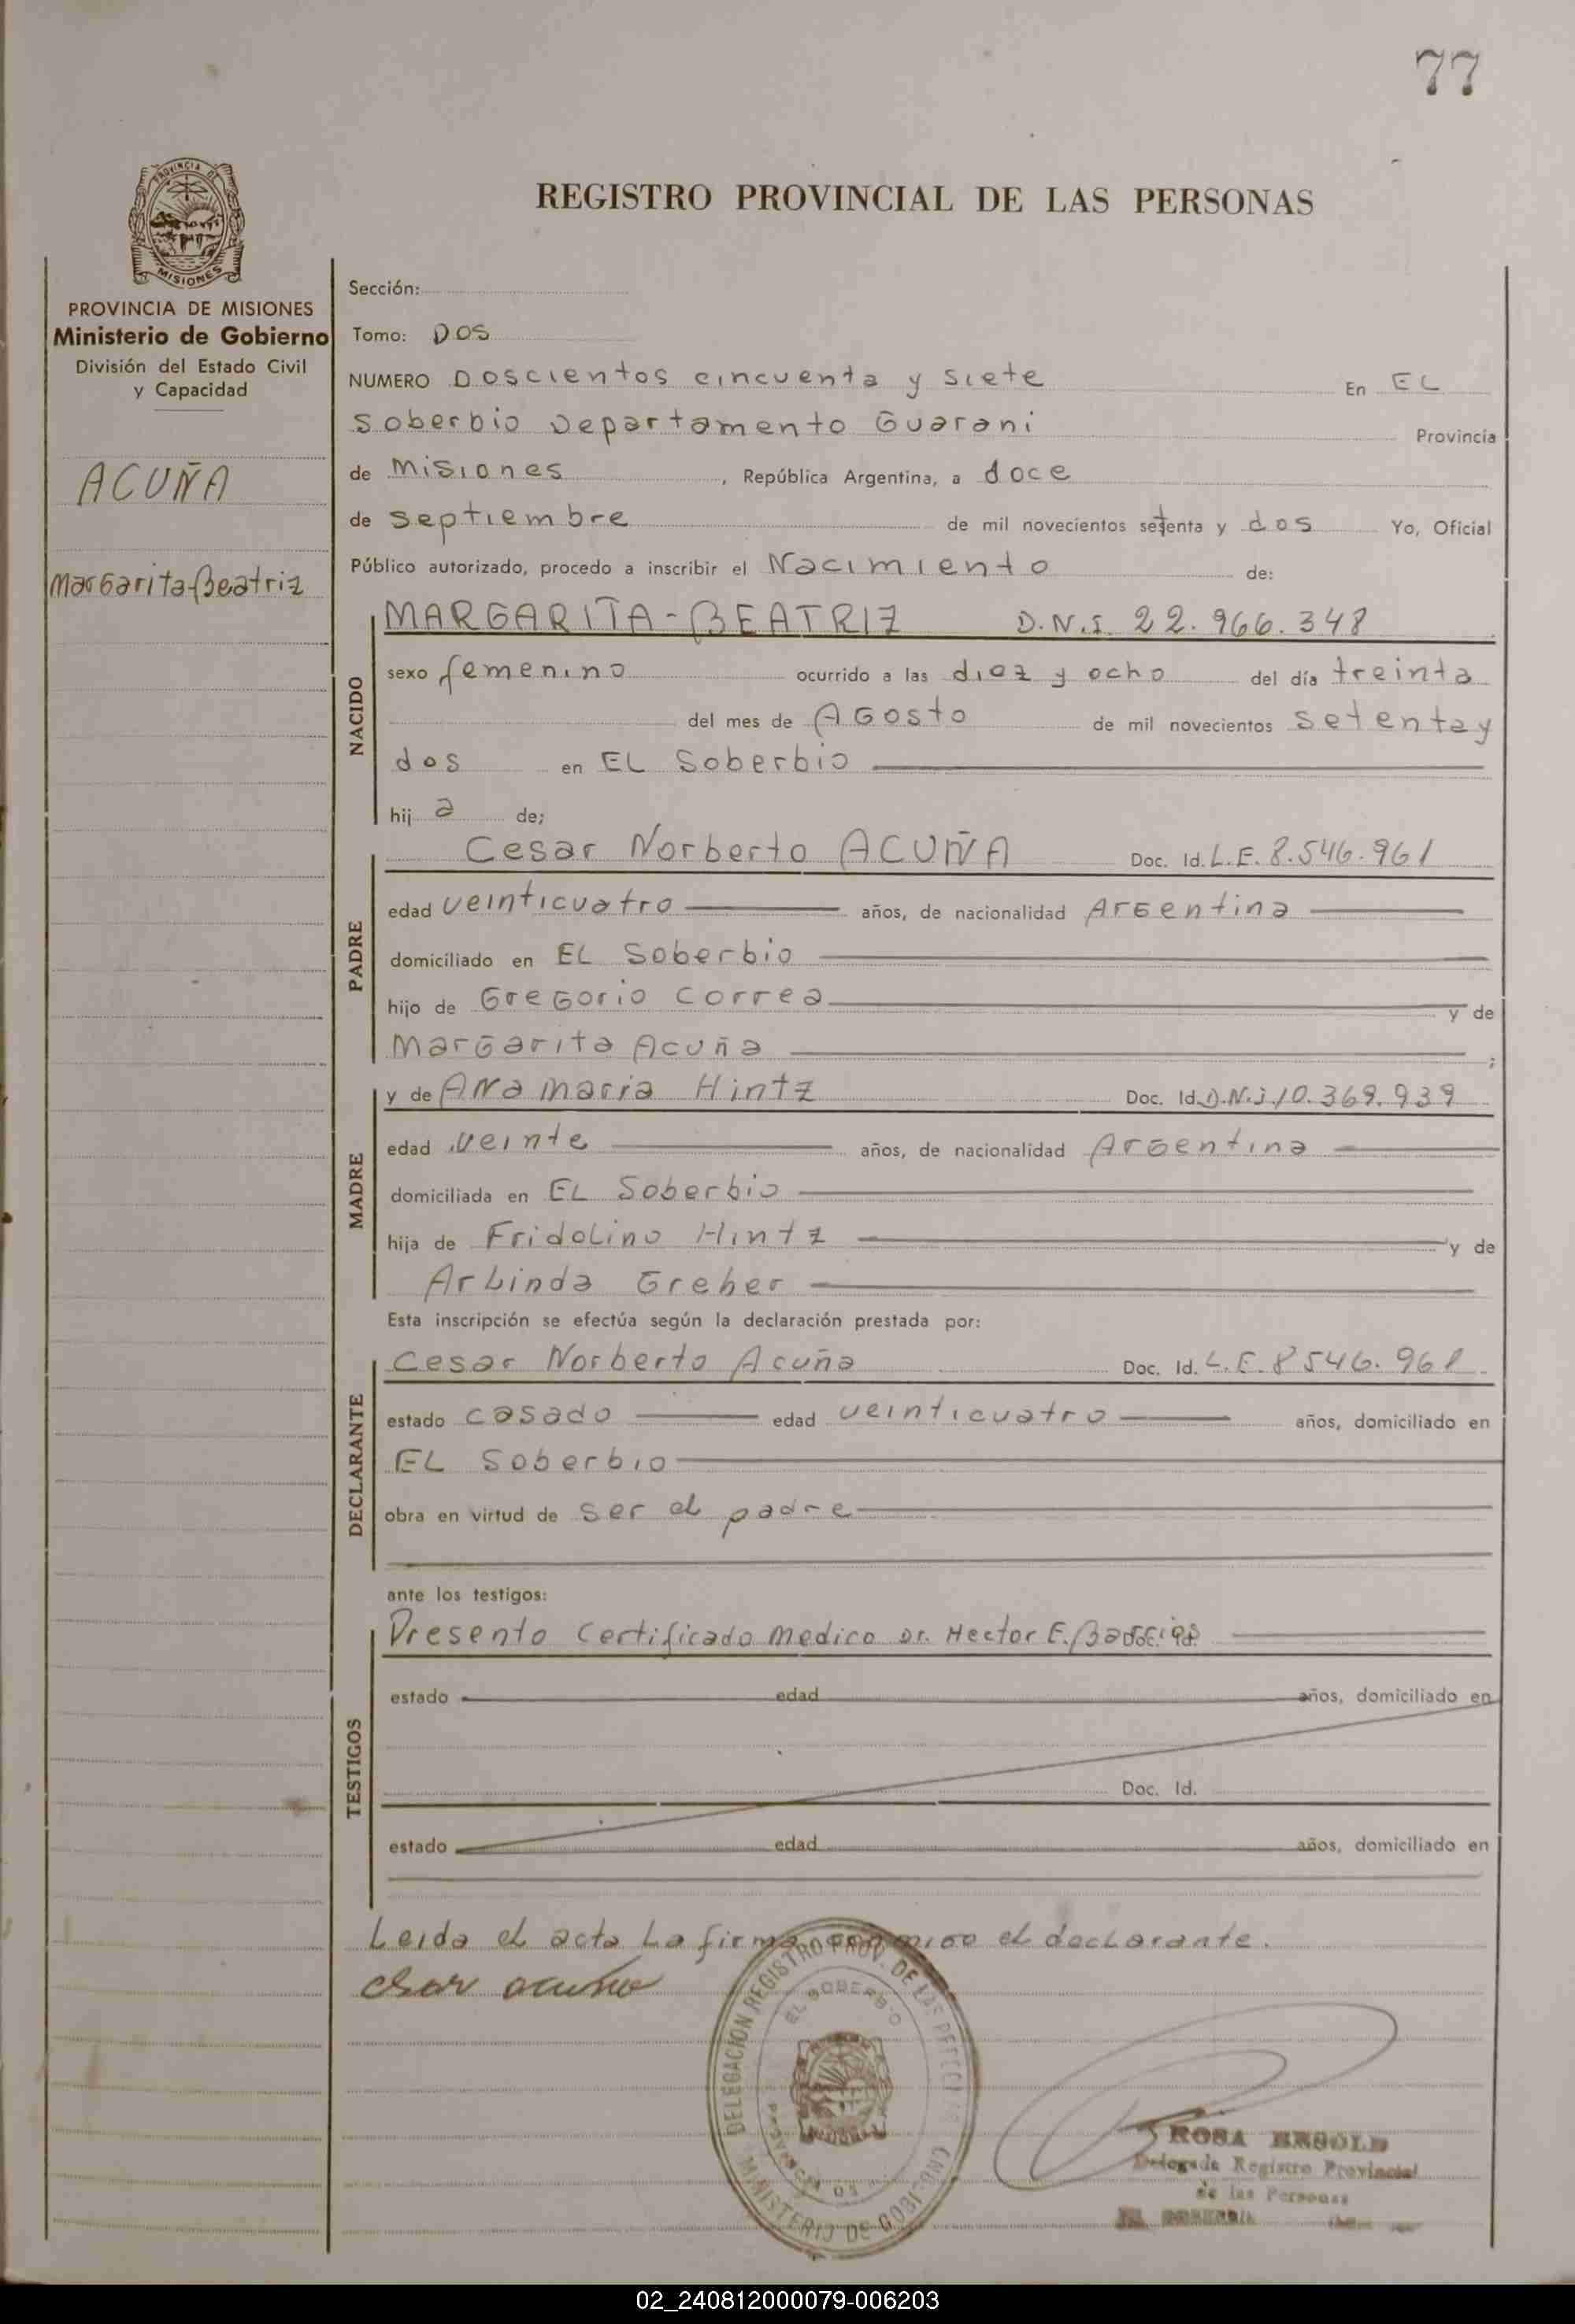 77
PROVINCIA DE
MISIONES
REGISTRO PROVINCIAL DE LAS PERSONAS
PROVINCIA DE MISIONES
Ministerio de Gobierno
División del Estado Civil
y Capacidad
ACUÑA
Margarita-Beatriz
Sección:
Tomo: Dos
NUMERO Doscientos cincuenta y siete En EL
Soberbio Departamento Guarani Provincia
de Misiones, República Argentina, a doce
de septiembre de mil novecientos setenta y dos Yo, Oficial
Público autorizado, procedo a inscribir el Nacimiento de:
NACIDO
MARGARITA-BEATRIZ D.N.I. 22.966.348
sexo femenino ocurrido a las diez y ocho del día treinta
del mes de AGosto de mil novecientos setenta y
dos en EL Soberbio
hija de;
PADRE
Cesar Norberto ACUÑA Doc. Id. L.E. 8.546.961
edad veinticuatro años, de nacionalidad Argentina
domiciliado en EL Soberbio
hijo de Gregorio Correa y de
Margarita Acuña;
MADRE
y de Ana Maria Hintz Doc. Id. D.N.I 10.369.939
edad veinte años, de nacionalidad Argentina
domiciliada en EL Soberbio
hija de Fridolino Hintz y de
Arlinda Greber
Esta inscripción se efectúa según la declaración prestada por:
DECLARANTE
Cesar Norberto Acuña Doc. Id. L.E. 8.546.961
estado casado edad veinticuatro años, domiciliado en
EL Soberbio
obra en virtud de ser el padre
ante los testigos:
TESTIGOS
Presento Certificado Medico Dr. Hector E.
estado edad años, domiciliado en
Doc. Id.
estado edad años, domiciliado en
Leida el acta La firma conmigo el declarante.
Cesar Acuña
DELEGACION REGISTRO PROV. DE LAS
EL SOBERBIO
MINISTERIO DE GOBIERNO
ROSA
Delegada Registro Provincial
de las Personas
EL SOBERBIO
02_240812000079-006203